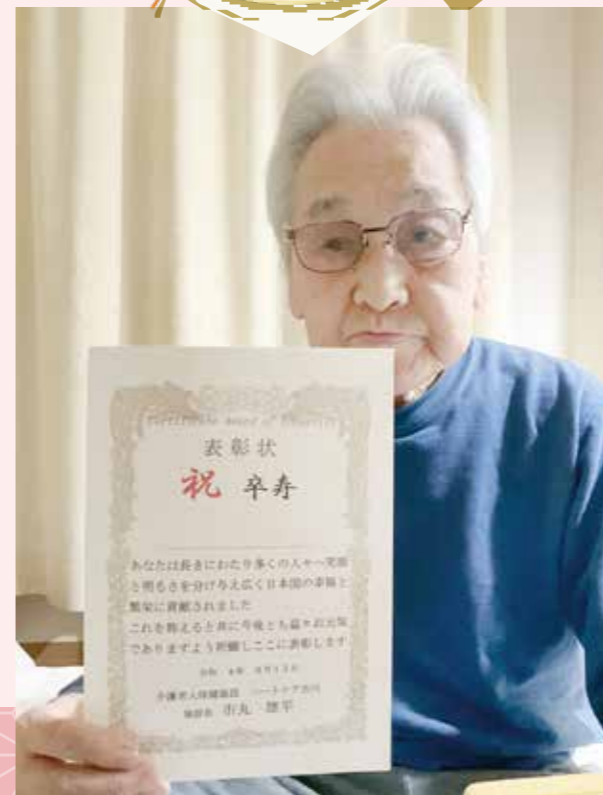 表彰状
祝 卒寿
あなたは長きにわたり多くの人々へ笑顔
と明るさを分け与え広く日本国の幸福と
繁栄に貢献されました
これを称えると共に今後とも益々お元気
でありますよう祈願しここに表彰します
介護老人保健施設 ハートケア市川
施設長 市丸